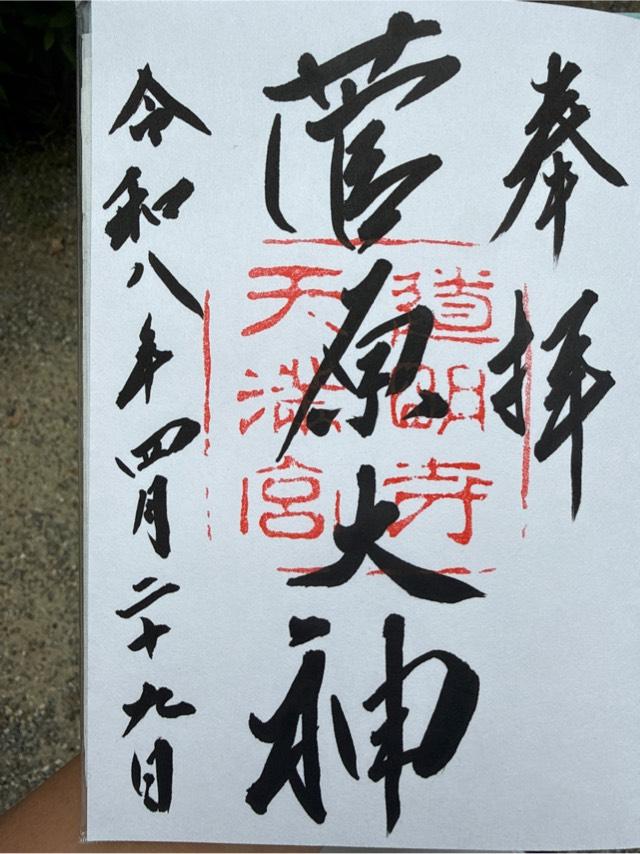 奉拝
菅原大神
道明寺
天満宮
令和八年四月二十九日